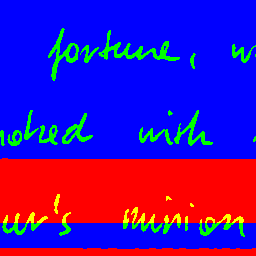 fortune, w
moked with
ur's minion